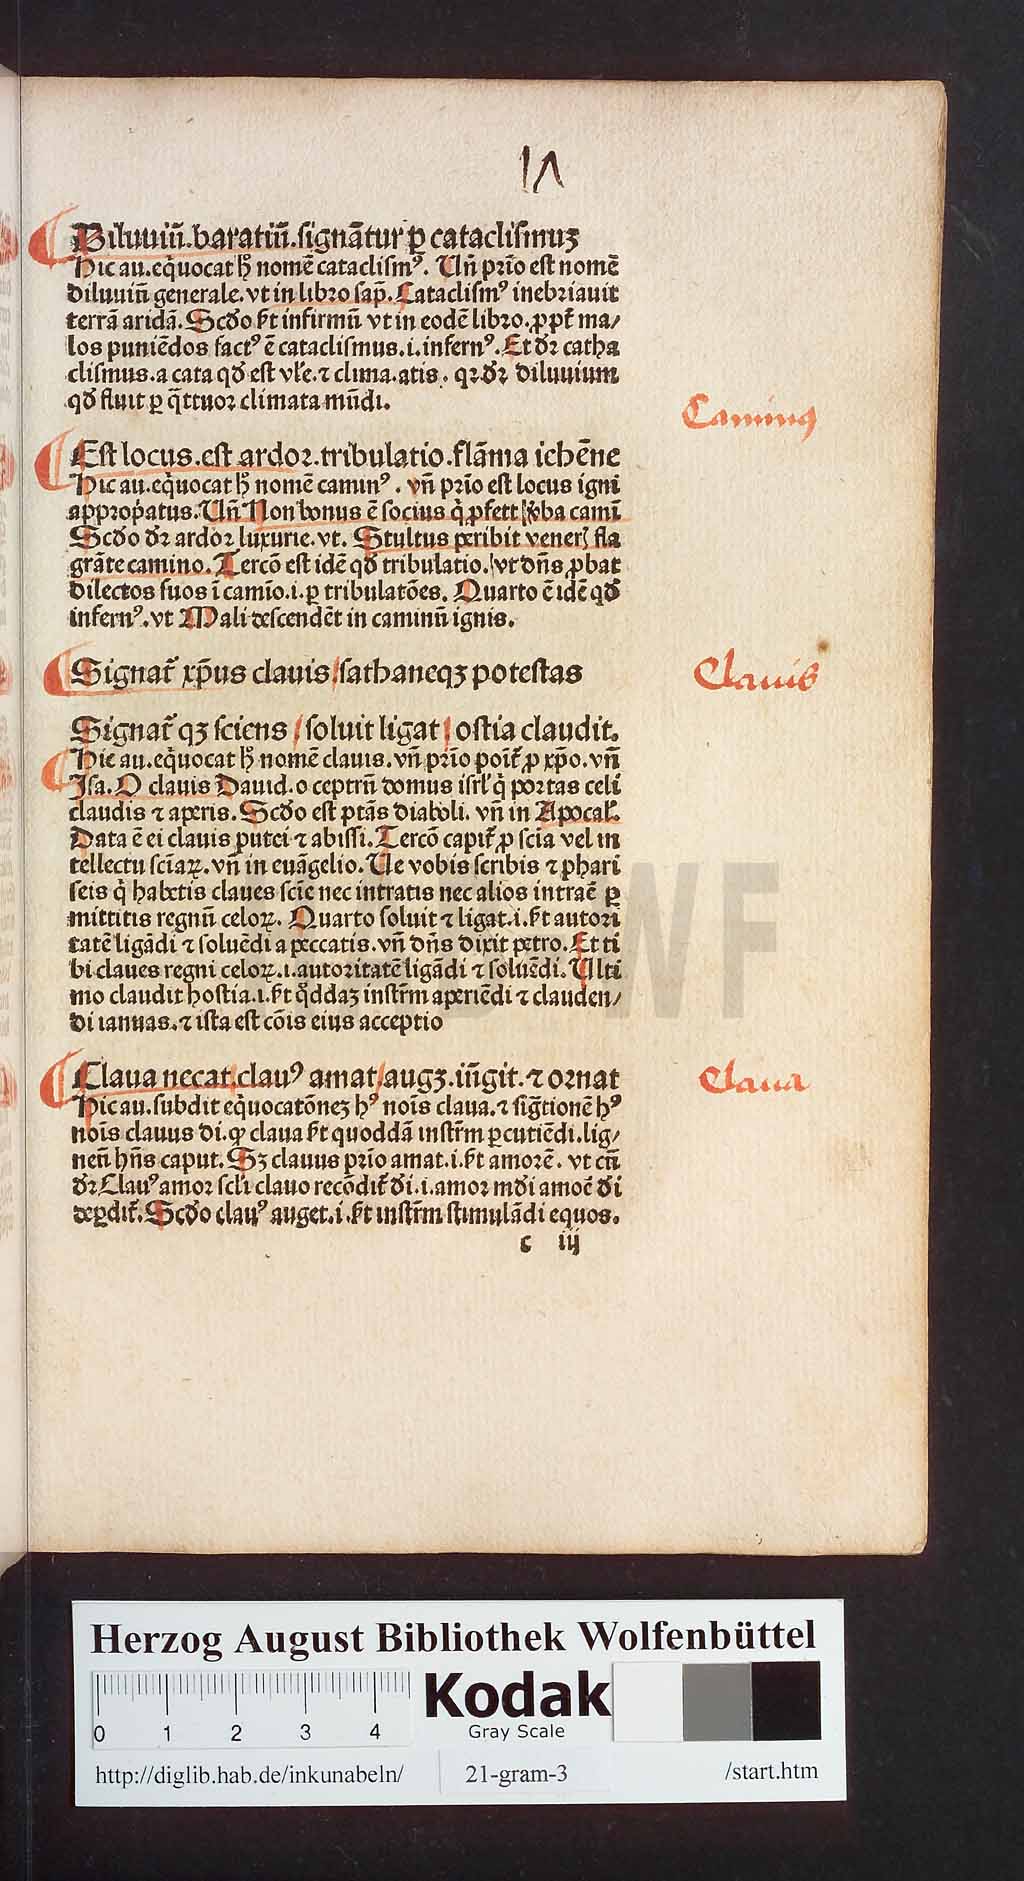 17
Diluuiū.baratiū.signātur ꝑ cataclismuȝ
Hic au.eq̇uocat hͦ nomē cataclismꝰ. Un̄ prīo est nomē
diluuiū generale.vt in libro sap̄. Cataclismꝰ inebriauit
terrā aridā. Scd̄o ſt infirmū vt in eodē libro.ꝓpt̄ ma/
los puniēdos factꝰ ē cataclismus.i.infernꝰ. Et dr̄ catha
clismus.a cata qd̄ est vl̄e.⁊ clima.atis. qr dr̄ diluuium
qd̄ fluit ꝑ q̄ttuor climata mūdi.
Caminꝰ
Est locus.est ardor.tribulatio.flāma iehēne
Hic au.eq̇uocat hͦ nomē caminꝰ. vn̄ prīo est locus igni
appropͥatus. Un̄ Non bonus ē socius q̇ ꝓfert v̄ba cami
Scd̄o dr̄ ardor luxurie.vt. Stultus peribit veneris fla
grāte camino. Tercō est idē qd̄ tribulatio. vt dn̄s ꝓbat
dilectos suos ī camīo.i.ꝑ tribulatōes. Quarto ē idē qd̄
infernꝰ.vt Mali descendēt in caminū ignis.
Clauis
Signat̄ xp̄us clauis/sathaneqȝ potestas
Signat̄ qȝ sciens/soluit ligat/ostia claudit.
Hic au.eq̇uocat hͦ nomē clauis.vn̄ prīo poit̄ ꝓ xp̄o.vn̄
Isa. O clauis Dauid.o ceptrū domus isrl̄ q̇ portas celi
claudis ⁊ aperis. Scd̄o est ptās diaboli. vn̄ in Apocal̄.
Data ē ei clauis putei ⁊ abissi. Tercō capit̄ ꝓ scīa vel in
tellectu scīaꝝ. vn̄ in euāgelio. Ue vobis scribis ⁊ phari
seis q̇ habetis claues scīe nec intratis nec alios intraē ꝑ
mittitis regnū celoꝝ. Quarto soluit ⁊ ligat.i.ſt autori
tatē ligādi ⁊ soluēdi a peccatis.vn̄ dn̄s dixit petro. Et ti
bi claues regni celoꝝ.i.autoritatē ligādi ⁊ soluēdi. Ulti
mo claudit hostia.i.ſt qͦddaȝ instr̄m aperiēdi ⁊ clauden/
di ianuas.⁊ ista est cōis eius acceptio
Claua
Claua necat/clauꝰ amat/augȝ.iūgit.⁊ ornat
Hic au.subdit eq̇uocatōneȝ hꝰ nois claua.⁊ sig̅tionē hꝰ
nois clauus di.ꝙ claua ſt quoddā instr̄m ꝑcutiēdi.lig/
neū hn̄s caput. Sȝ clauus prīo amat.i.ſt amorē. vt cū
dr̄ Clauꝰ amor scl̄i clauo recōdit̄ di.i.amor mdi amoē di
deꝑdit̄. Scd̄o clauꝰ auget.i.ſt instr̄m stimulādi equos.
c iij
HAB WF
Herzog August Bibliothek Wolfenbüttel
0 1 2 3 4
Kodak
Gray Scale
http://diglib.hab.de/inkunabeln/ 21-gram-3 /start.htm